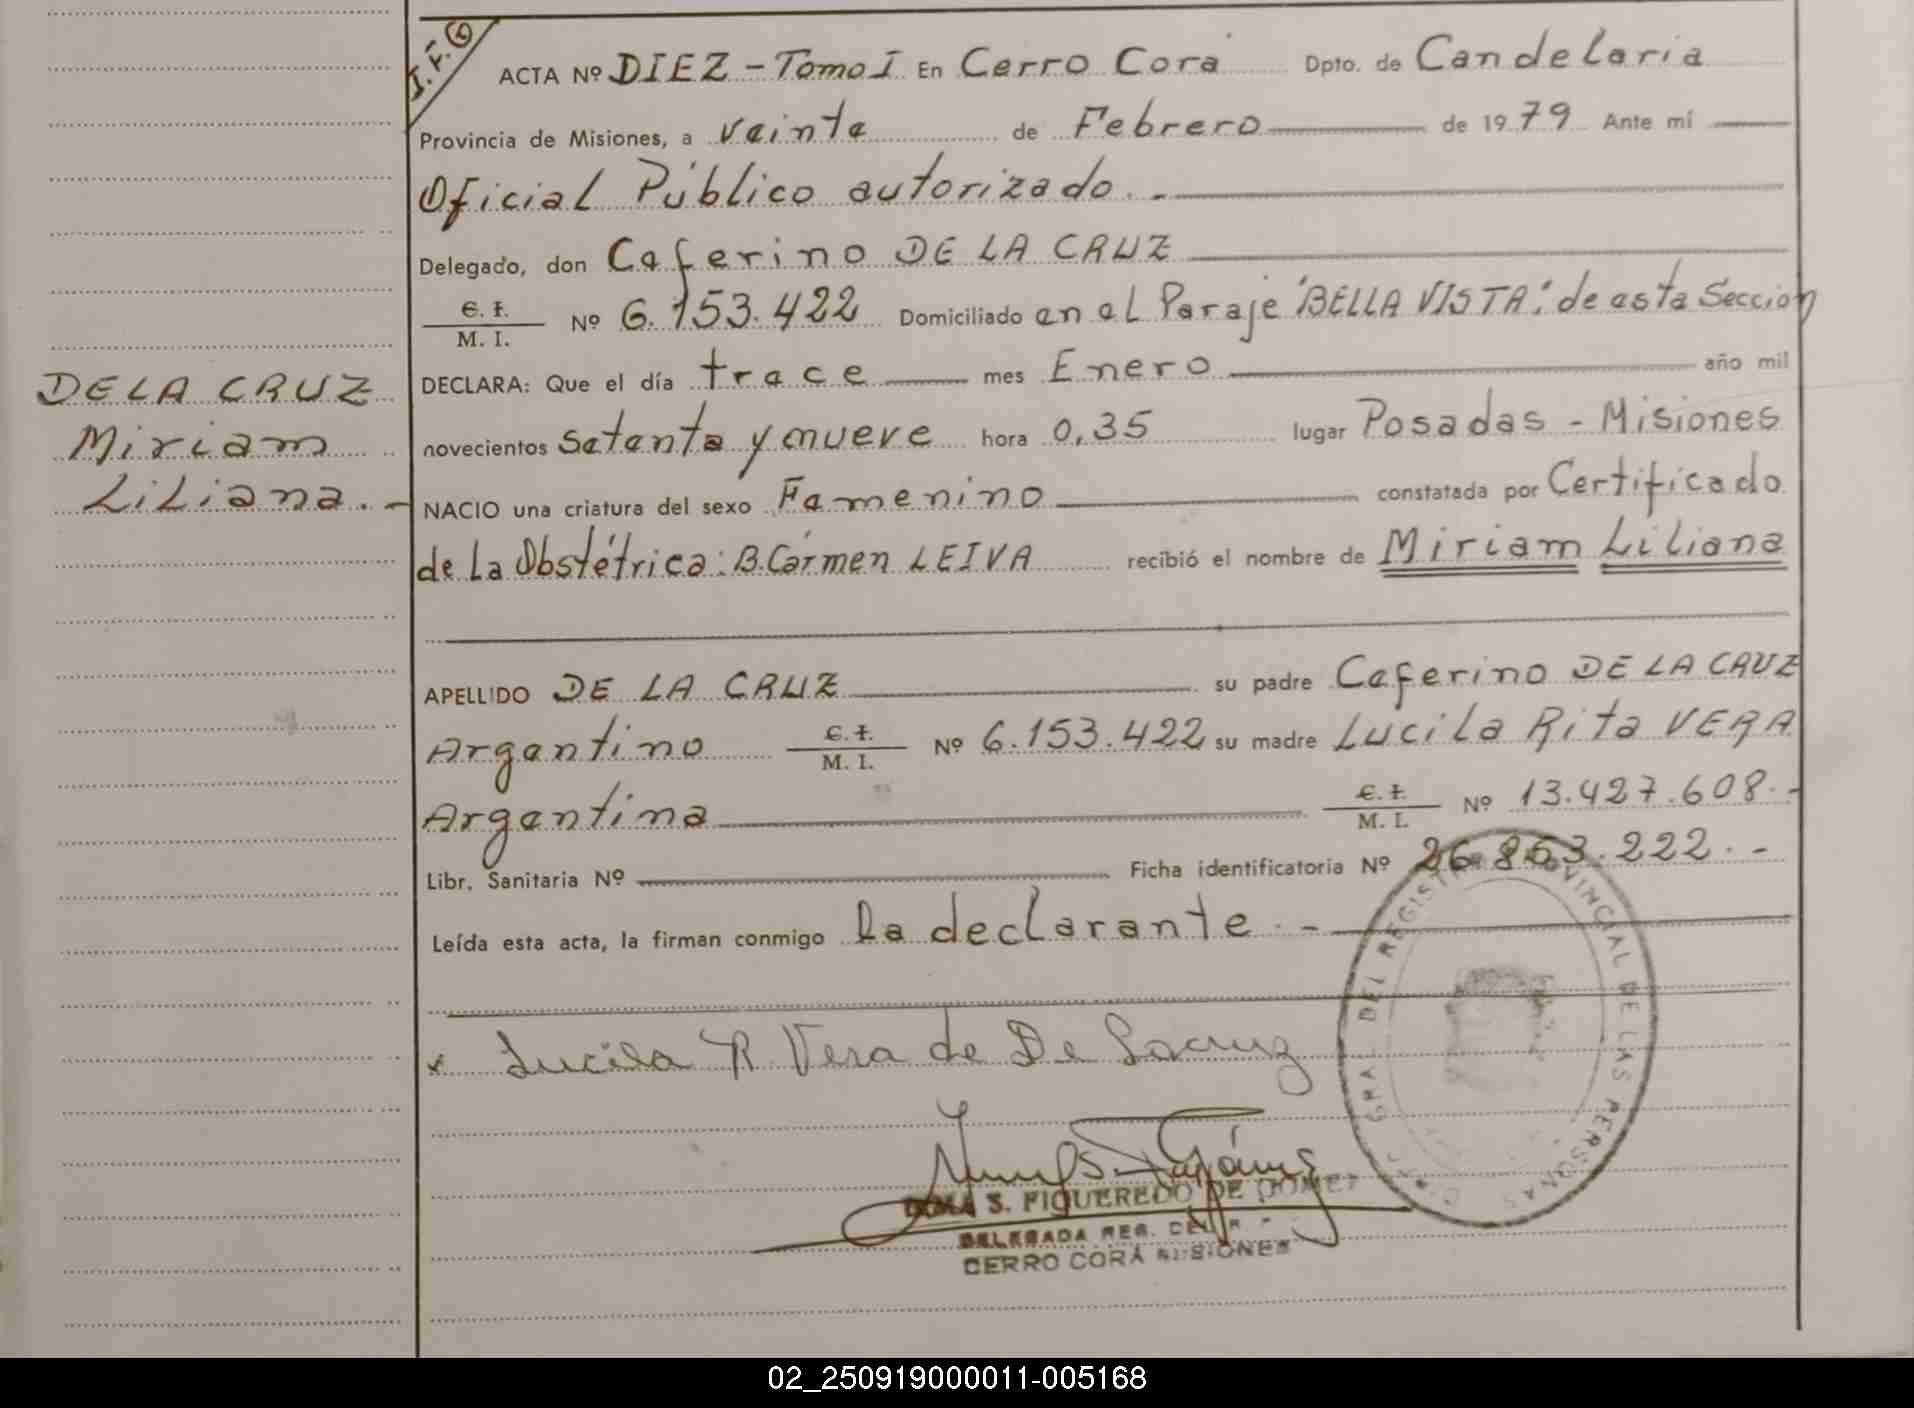 J.F.
ACTA Nº DIEZ - Tomo I En Cerro Corá Dpto. de Candelaria
Provincia de Misiones, a veinte de Febrero de 1979 Ante mí
Oficial Público autorizado. -
Delegado, don Ceferino DE LA CRUZ
C. I. / M. I. Nº 6.153.422 Domiciliado en el Paraje "BELLA VISTA" de esta Sección
DECLARA: Que el día trece mes Enero año mil
novecientos setenta y nueve hora 0,35 lugar Posadas - Misiones
NACIO una criatura del sexo Femenino constatada por Certificado
de la Obstétrica: B. Carmen LEIVA recibió el nombre de Miriam Liliana
APELLIDO DE LA CRUZ su padre Ceferino DE LA CRUZ
Argentino C. I. / M. I. Nº 6.153.422 su madre Lucila Rita VERA
Argentina C. I. / M. I. Nº 13.427.608. -
Libr. Sanitaria Nº Ficha identificatoria Nº 26.853.222. -
Leída esta acta, la firman conmigo La declarante. -
DE LA CRUZ
Miriam
Liliana. -
x Lucila R Vera de De Lacruz
S. FIGUEREDO DE
DELEGADA REG. DE
CERRO CORÁ MISIONES
DEL REGISTRO PROVINCIAL DE LAS PERSONAS
02_250919000011-005168